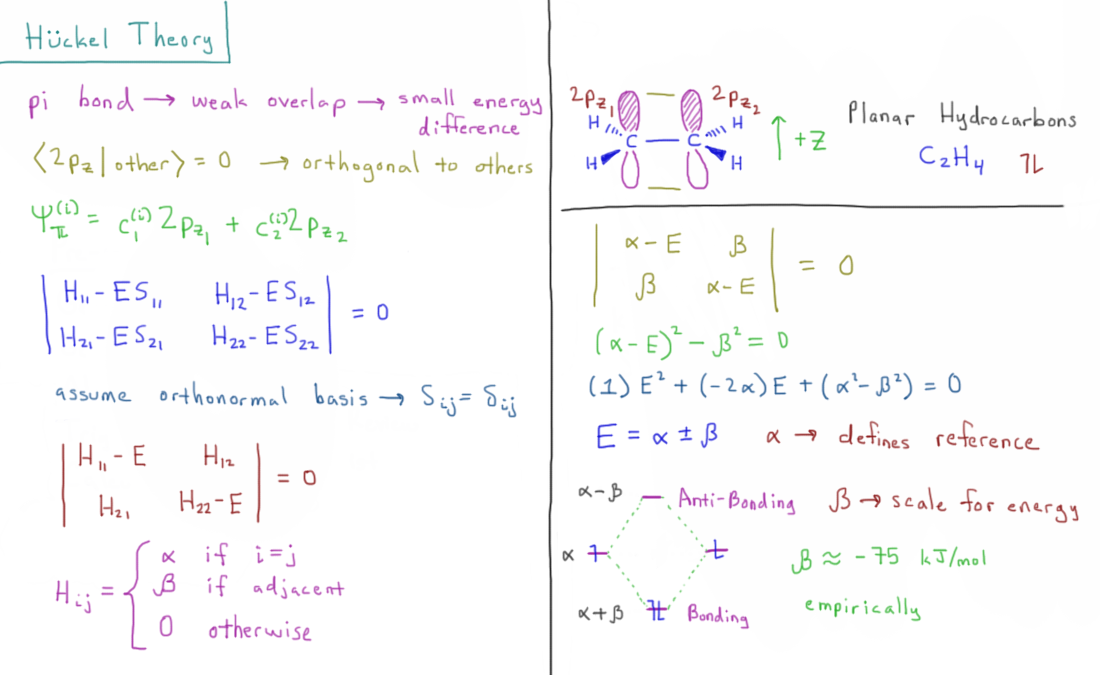 Hückel Theory
pi bond → weak overlap → small energy
difference
⟨2pz|other⟩ = 0 → orthogonal to others
Ψπ⁽ⁱ⁾ = c₁⁽ⁱ⁾2pz₁ + c₂⁽ⁱ⁾2pz₂
| H₁₁ - ES₁₁ H₁₂ - ES₁₂ |
| H₂₁ - ES₂₁ H₂₂ - ES₂₂ | = 0
assume orthonormal basis → Sᵢⱼ = δᵢⱼ
| H₁₁ - E H₁₂ |
| H₂₁ H₂₂ - E | = 0
Hᵢⱼ = { α if i=j
β if adjacent
0 otherwise
2Pz₁ 2Pz₂
H H
C C
H H
↑ +Z
Planar Hydrocarbons
C₂H₄
| α - E β |
| β α - E | = 0
(α - E)² - β² = 0
(1) E² + (-2α) E + (α² - β²) = 0
E = α ± β α → defines reference
α-β Anti-Bonding β → scale for energy
α β ≈ -75 kJ/mol
α+β Bonding empirically